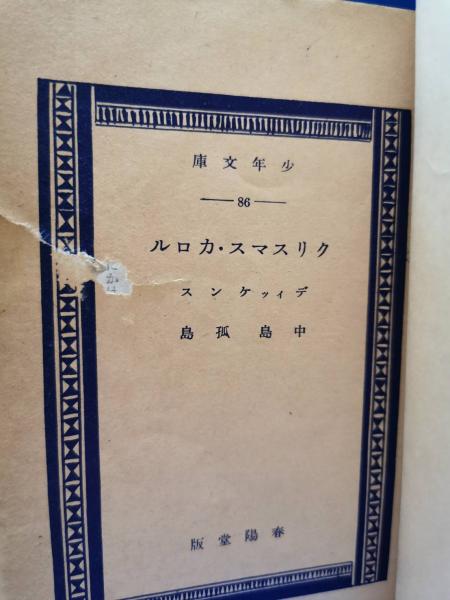 少年文庫
—86—
クリスマス・カロル
ディッケンス
中島孤島
春陽堂版